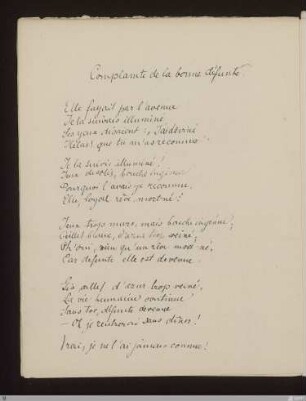 Complainte de la bonne défunte
Elle fuyait par l'avenue
Je la suivais illuminé
Ses yeux disaient : "J'ai deviné
Hélas! que tu m'as reconnue"
Je la suivis illuminé!
Yeux désolés, bouche ingénue
Pourquoi l'avais-je reconnue,
Elle, loyal rêve mort-né!
Yeux trop mûrs, mais bouche ingénue;
Œillet blanc, d'azur trop veiné,
Oh! oui, rien qu'un rêve mort-né,
Car défunte elle est devenue.
Gis, œillet, d'azur trop veiné,
La vie humaine continue
Sans toi, défunte devenue
— Oh! je rentrerai sans dîner!
Vrai, je ne l'ai jamais connue!